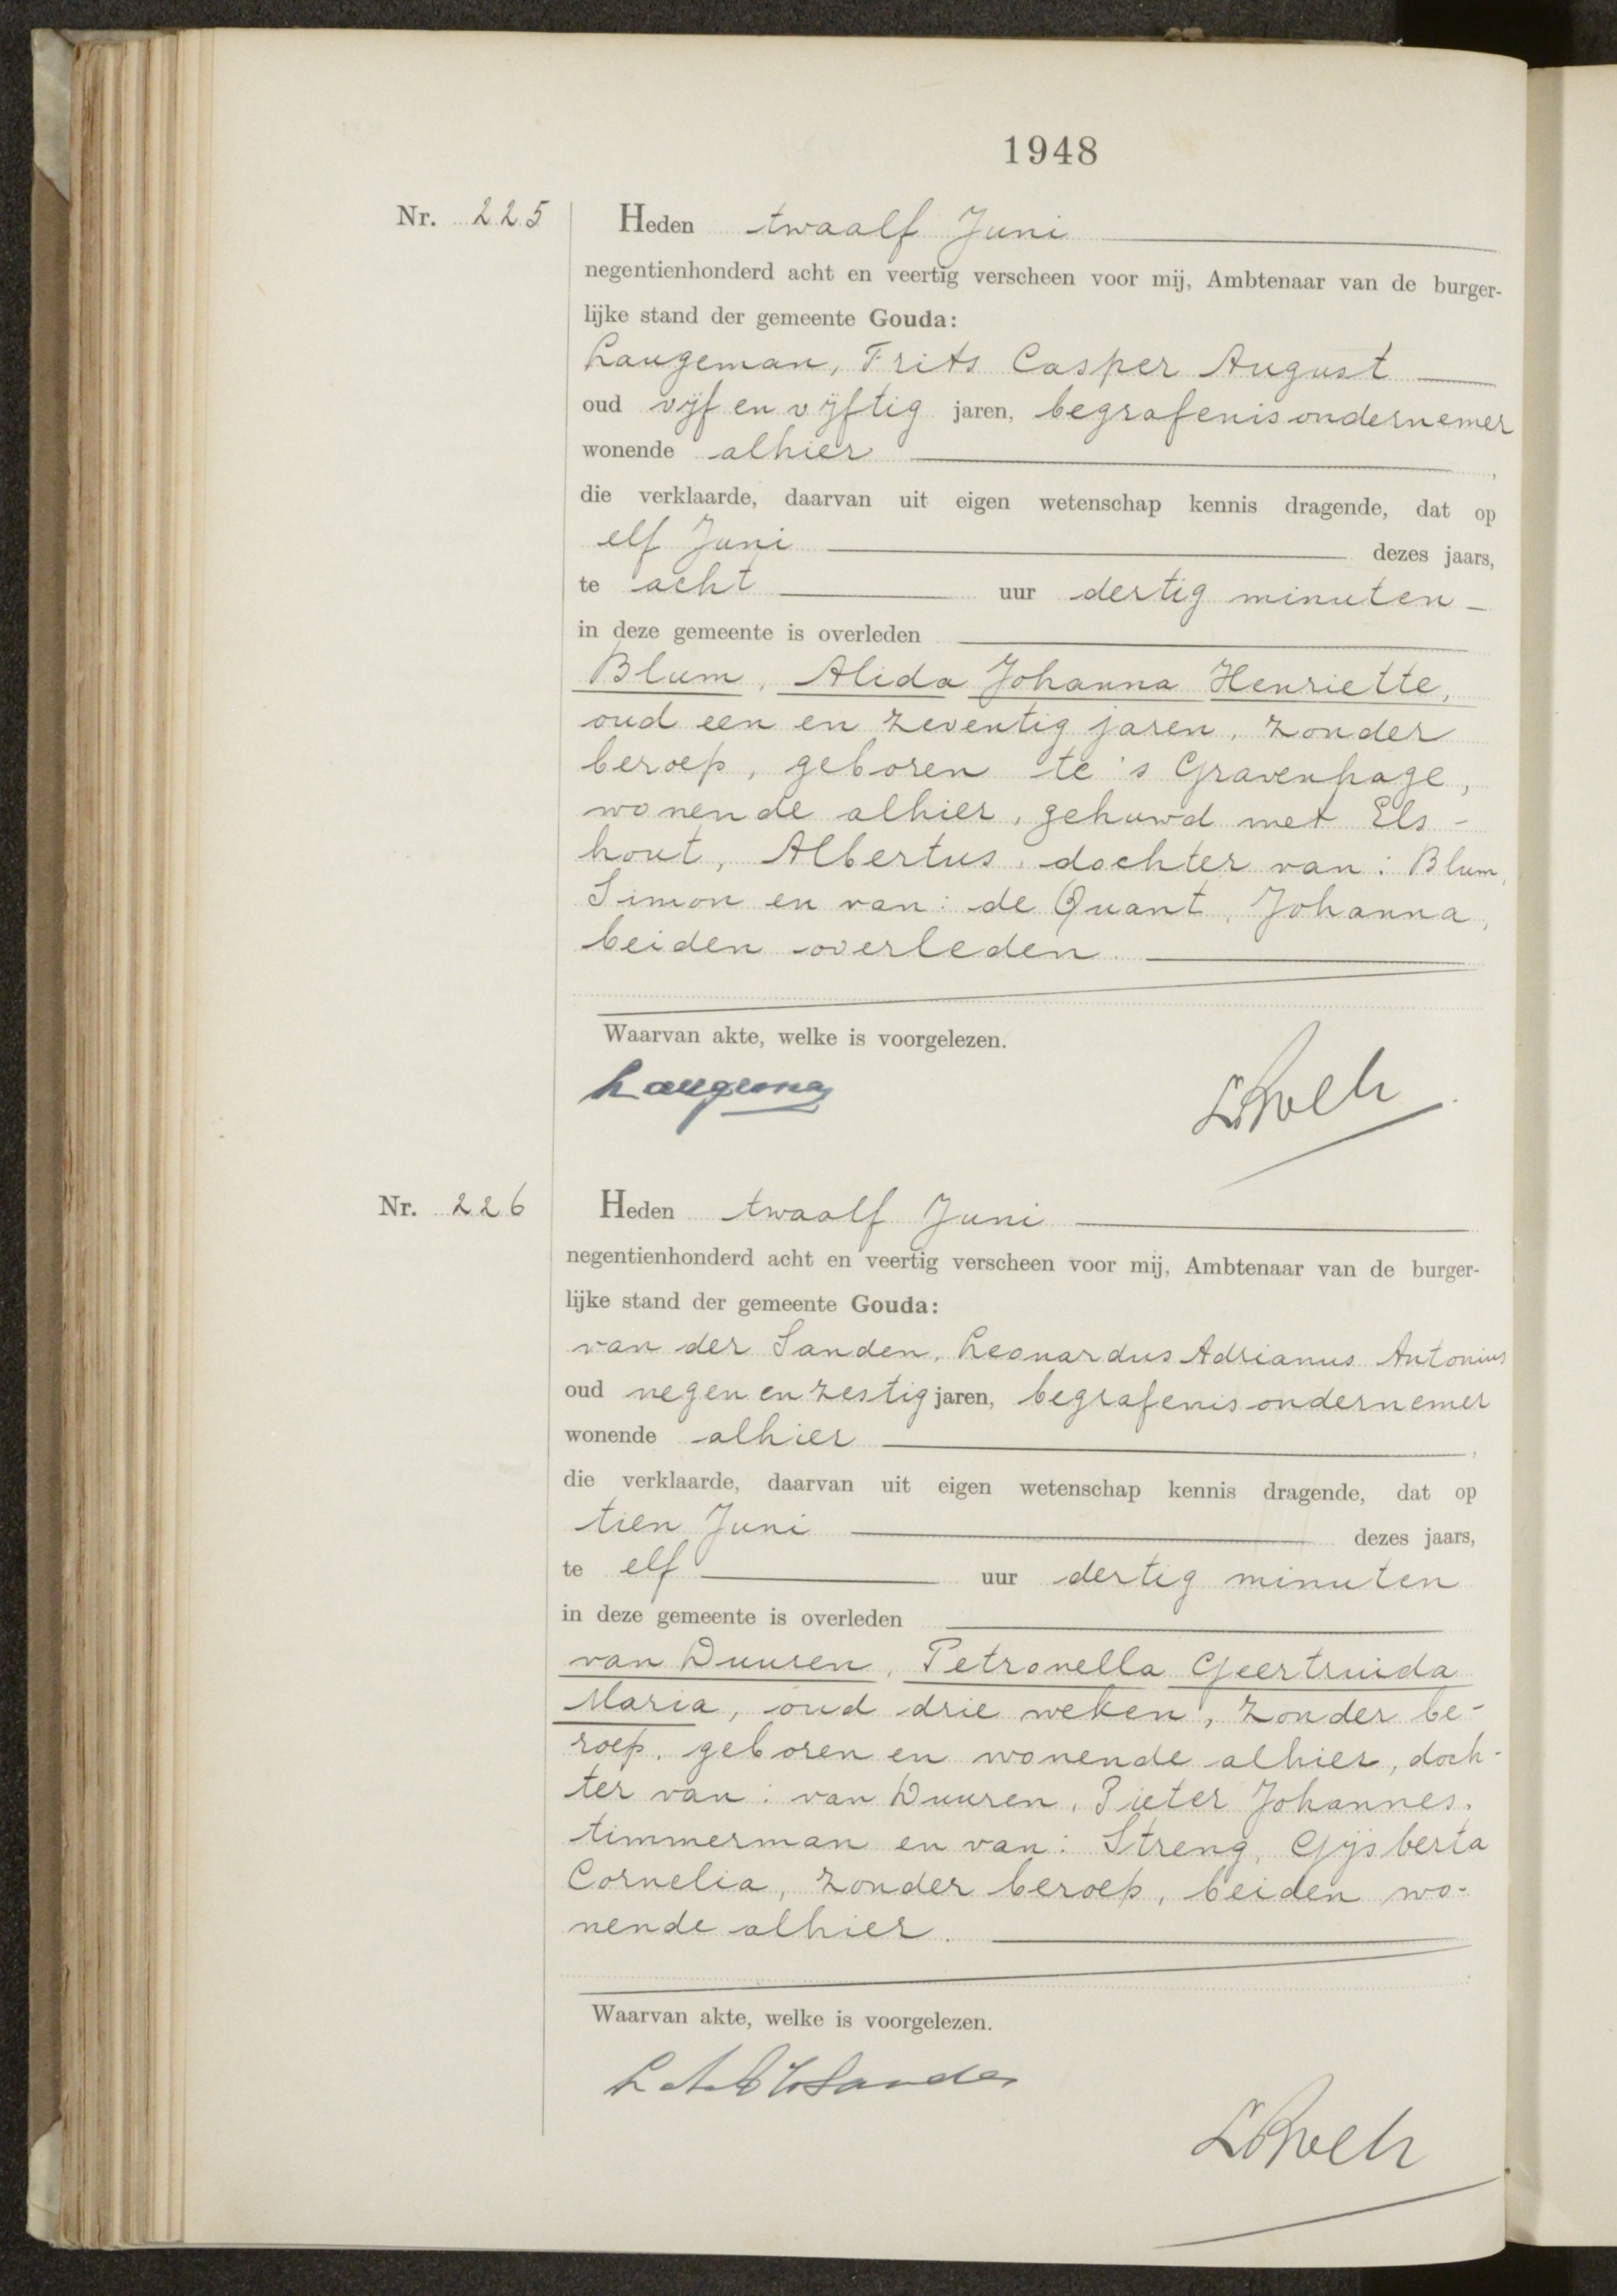 1948
Nr. 225
Heden twaalf Juni
negentienhonderd acht en veertig verscheen voor mij, Ambtenaar van de burger-
lijke stand der gemeente Gouda:
Langeman, Frits Casper August
oud vijf en vijftig jaren, begrafenisondernemer
wonende alhier,
die verklaarde, daarvan uit eigen wetenschap kennis dragende, dat op
elf Juni dezes jaars,
te acht uur dertig minuten
in deze gemeente is overleden
Blum, Alida Johanna Henriette,
oud een en zeventig jaren, zonder
beroep, geboren te 's Gravenhage,
wonende alhier, gehuwd met Els-
hout, Albertus, dochter van: Blum,
Simon en van: de Quant, Johanna,
beiden overleden.
Waarvan akte, welke is voorgelezen.
Nr. 226
Heden twaalf Juni
negentienhonderd acht en veertig verscheen voor mij, Ambtenaar van de burger-
lijke stand der gemeente Gouda:
van der Sanden, Leonardus Adrianus Antonius
oud negen en zestig jaren, begrafenisondernemer
wonende alhier,
die verklaarde, daarvan uit eigen wetenschap kennis dragende, dat op
tien Juni dezes jaars,
te elf uur dertig minuten
in deze gemeente is overleden
van Duuren, Petronella Geertruida
Maria, oud drie weken, zonder be-
roep, geboren en wonende alhier, doch-
ter van: van Duuren, Pieter Johannes,
timmerman en van: Streng, Gijsberta
Cornelia, zonder beroep, beiden wo-
nende alhier.
Waarvan akte, welke is voorgelezen.